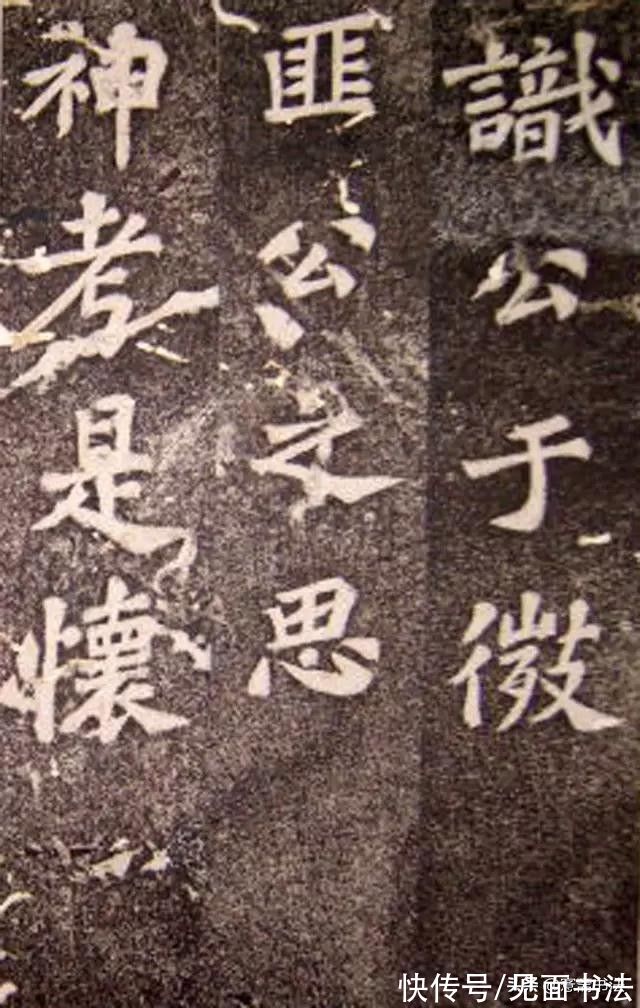 識公于微
匪公之思
神考是懷
快传号/见面书法